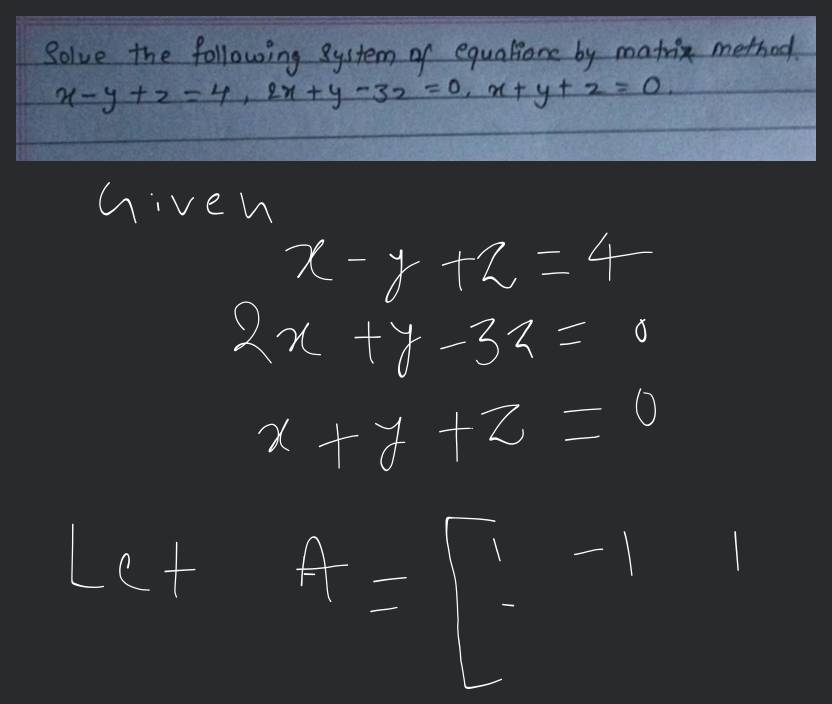 Solve the following System of equations by matrix method.
x-y+z=4, 2x+y-3z=0, x+y+z=0.
Given
x-y+z=4
2x+y-3z=0
x+y+z=0
Let A=[1 -1 1
-